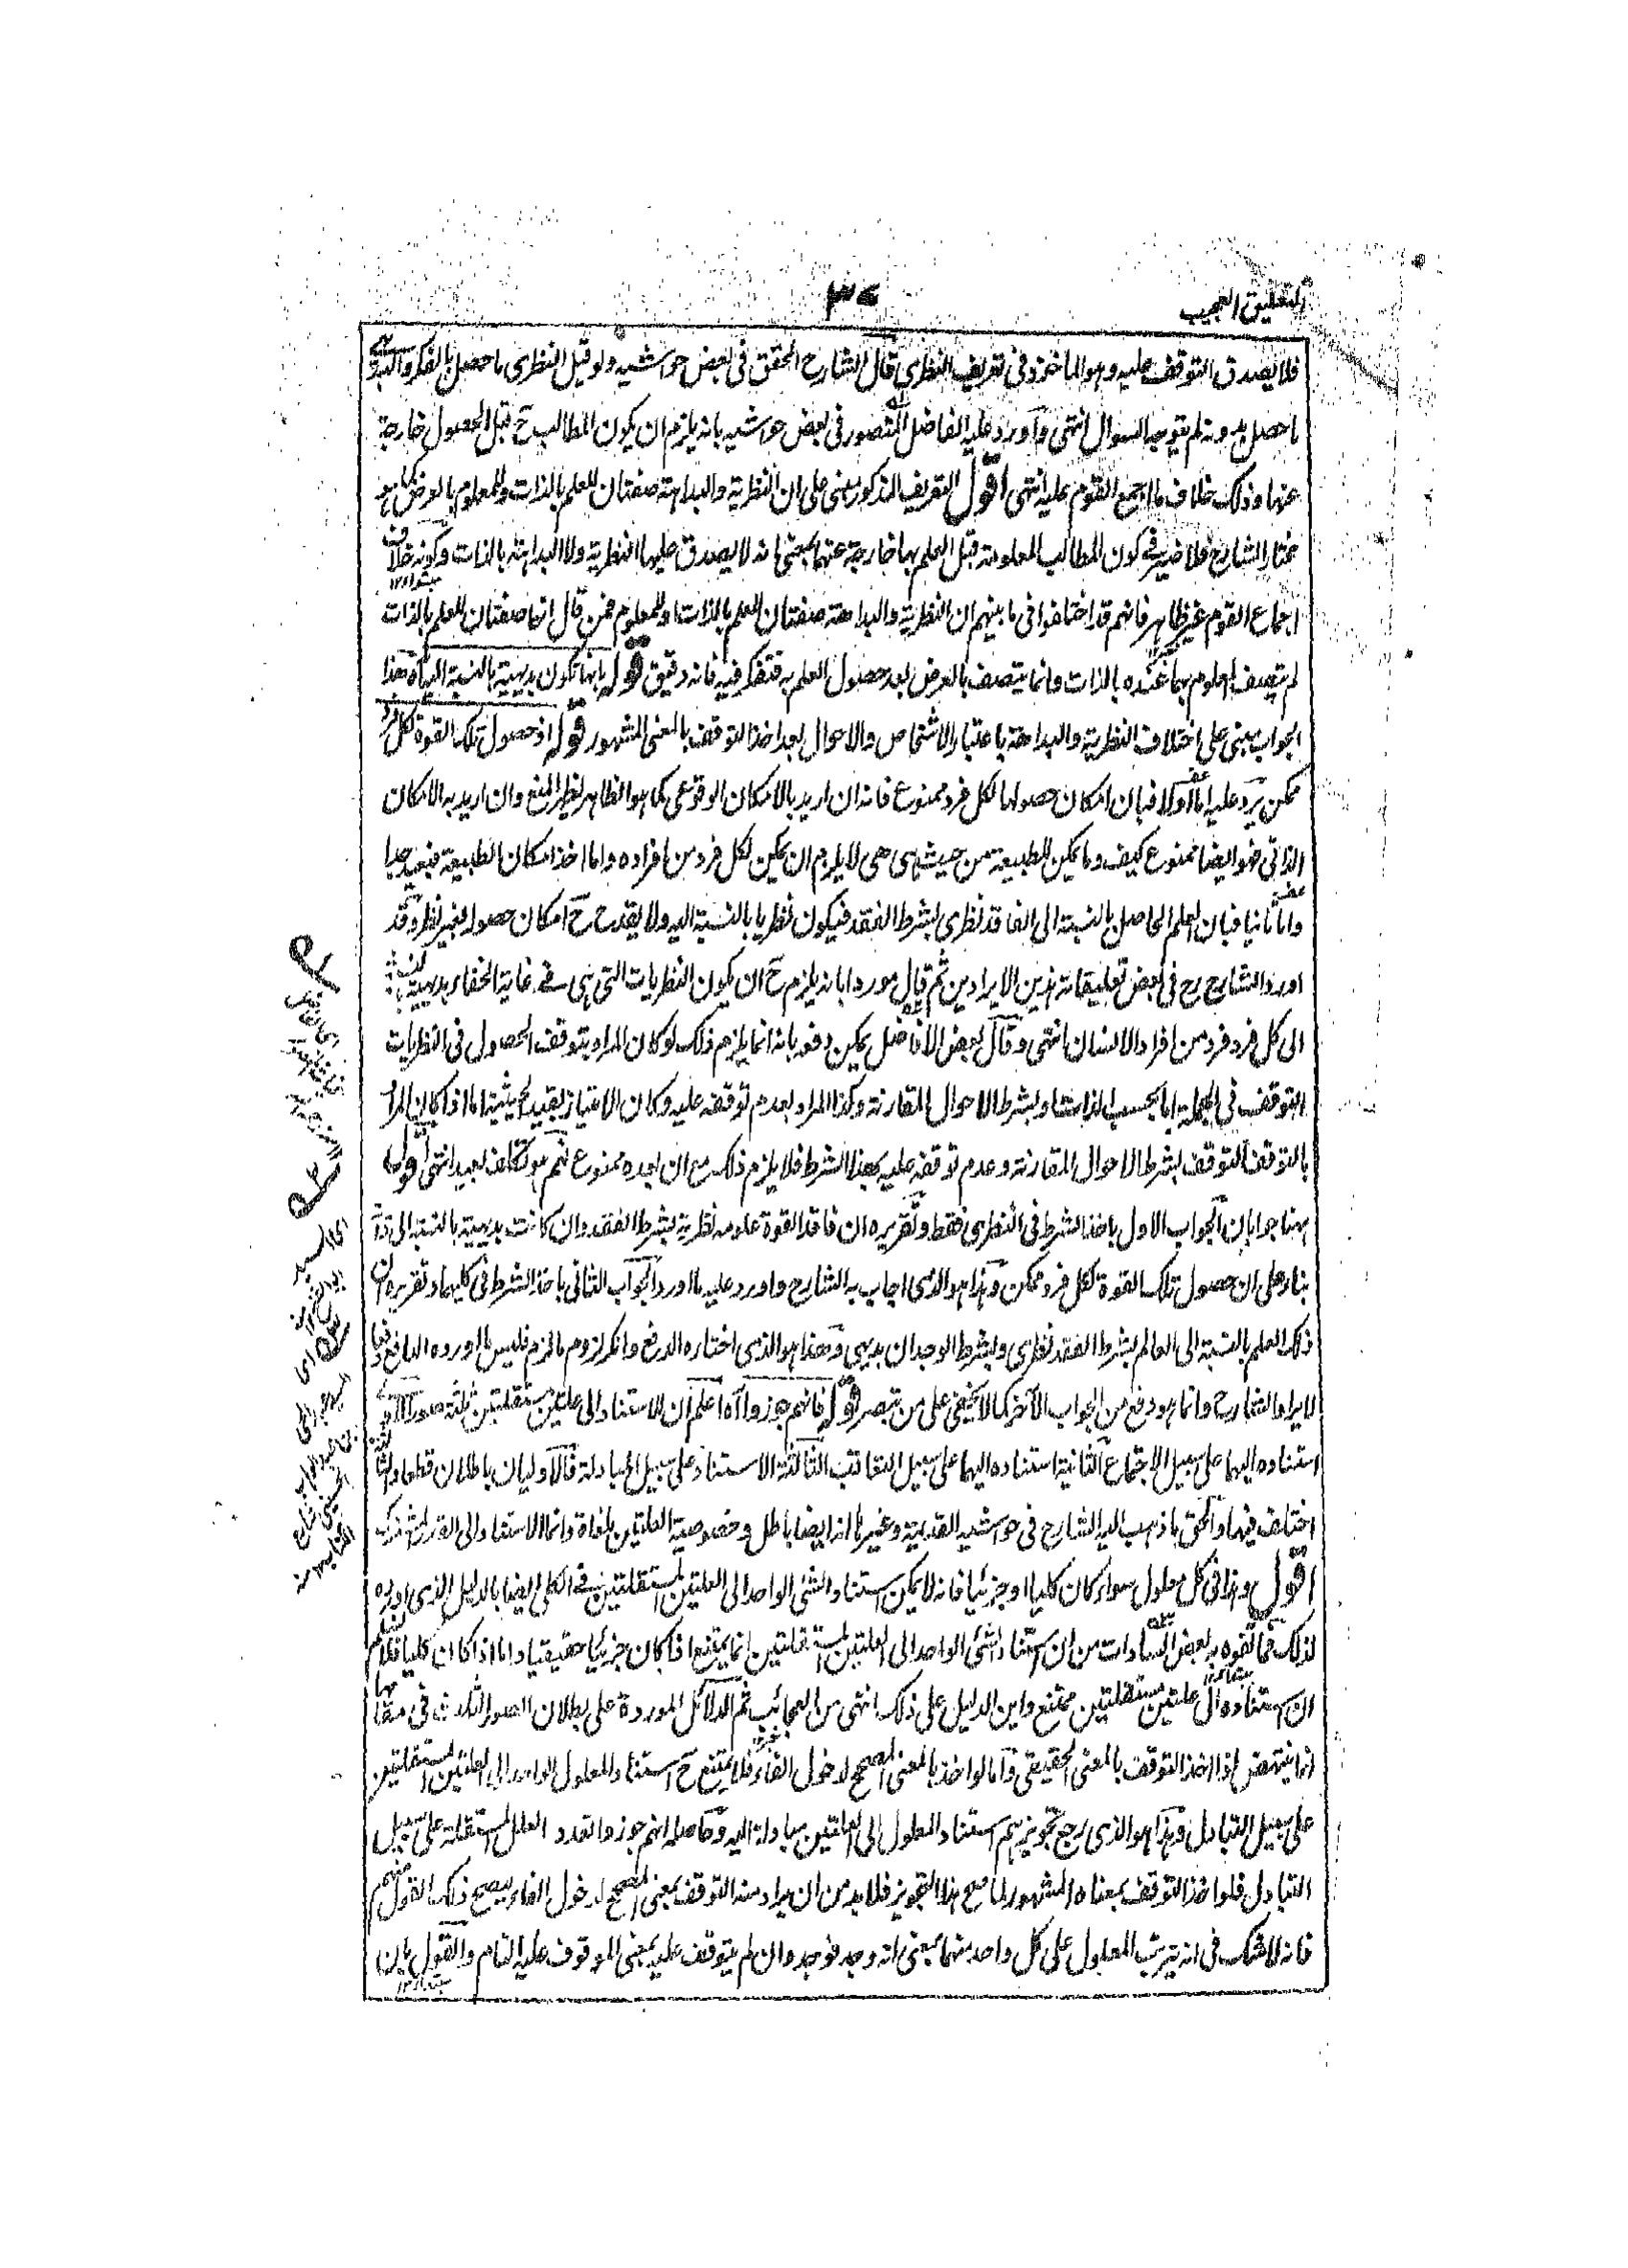 التعليق العجيب
٣٤
فلا يصدق التوقف عليه وهو الماخوذ في تعريف النظرى قال الشارح المحقق فى بعض حواشيه ولو قيل النظرى ما حصل بالفكر والبديهى
ما حصل بدونه لم يتوجه السوال انتهى واورد عليه الفاضل المتصور فى بعض حواشيه بانه يلزم ان يكون المطالب ح قبل الحصول خارجة
عنها وذلك خلاف ما اجمع القوم عليه انتهى اقول التعريف المذكور مبنى على ان النظرية والبداهة صفتان للعلم بالذات وللمعلوم بالعرض كما هو
مختار الشارح فلا ضير فى كون المطالب المعلومة قبل العلم بها خارجة عنهما بمعنى انه لا يصدق عليها النظرية ولا البداهة بالذات وكونه خلاف
اجماع القوم غير ظاهر فانهم قد اختلفوا فى ما بينهم ان النظرية والبداهة صفتان للعلم بالذات او للمعلوم فمن قال انها صفتان للعلم بالذات
لم يتصف المعلوم بهما عنده بالذات وانما يتصف بالعرض بعد حصول العلم به فتفكر فيه فانه دقيق قوله بانها تكون بديهية بالنسبة اليه اه هذا
الجواب مبنى على اختلاف النظرية والبداهة باعتبار الاشخاص والاحوال بعد اخذ التوقف بالمعنى المشهور قوله اذ حصول تلك القوة لكل فرد
ممكن يرد عليه اما اولا فبان امكان حصولها لكل فرد ممنوع فانه ان اريد بالامكان الوقوعى كما هو الظاهر لظهر المنع وان اريد به الامكان
الذاتى فهو ايضا ممنوع كيف وما يمكن للطبيعة من حيث هى هى لا يلزم ان يمكن لكل فرد من افراده واما اخذ امكان الطبيعة فبعيد جدا
واما ثانيا فبان العلم الحاصل بالنسبة الى الفاقد نظرى بشرط الفقد فيكون نظريا بالنسبة اليه ولا يقدح ح امكان حصوله بغير نظر وقد
اورد الشارح رح فى بعض تعليقاته هذين الايرادين ثم قال موردا بانه يلزم ح ان يكون النظريات التى هى فى غاية الخفاء بديهية بالنسبة
الى كل فرد فرد من افراد الانسان انتهى وقال بعض الافاضل يمكن دفعه بانه انما يلزم ذلك لو كان المراد بتوقف الحصول فى النظريات
التوقف فى الجملة اما بحسب الذات او بشرط الاحوال المقارنة وكذا المراد بعدم توقفه عليه وكان الامتياز بقيد الحيثية اما اذا كان المراد
بالتوقف التوقف بشرط الاحوال المقارنة وعدم توقفه عليه بهذا الشرط فلا يلزم ذلك مع ان بعده ممنوع نعم هو تكلف بعيد انتهى اقول
ههنا جوابان الجواب الاول باخذ الشرط فى النظرى فقط وتقريره ان فاقد القوة علومه نظرية بشرط الفقد وان كانت بديهية بالنسبة الى ذاته
بناء على ان حصول تلك القوة لكل فرد ممكن وهذا هو الذى اجاب به الشارح واورد عليه ما اورد الجواب الثانى باخذ الشرط فى كليهما وتقريره ان
ذلك العلم بالنسبة الى العالم بشرط الفقد نظرى وبشرط الوجدان بديهى وهذا هو الذى اختاره الدافع وانكر لزوم ما لزم فليس ما اورده الدافع دفعا
لايراد الشارح وانما هو دفع من الجواب الآخر كما لا يخفى على من تبصر قوله فانهم جوزوا آه اعلم ان للاستناد الى علتين مستقلتين ثلثة صور الاولى
استناده اليهما على سبيل الاجتماع الثانية استناده اليهما على سبيل التعاقب الثالثة الاستناد على سبيل المبادلة فالاوليان باطلان قطعا والثالثة
اختلف فيها والحق ما ذهب اليه الشارح فى حواشيه القديمة وغيرها انه ايضا باطل وخصوصية العلتين ملغاة وانما الاستناد الى القدر المشترك
اقول وهذا فى كل معلول سواء كان كليا او جزئيا فانه لا يمكن استناد الشئ الواحد الى العلتين المستقلتين فى الكلى ايضا بالدليل الذى اورده
لذلك فما تفوه به بعض السادات من ان استناد الشئ الواحد الى العلتين المستقلتين انما يمتنع اذا كان جزئيا حقيقيا واما اذا كان كليا فلا نسلم
ان استناده الى علتين مستقلتين ممتنع واين الدليل على ذلك انتهى من العجائب ثم الدلائل الموردة على بطلان الصور الثلث فى مقامها
انما ينتهض اذا اخذ التوقف بالمعنى الحقيقى واما لو اخذ بالمعنى المصحح لدخول الفاء فلا يمتنع ح استناد المعلول الواحد الى العلتين المستقلتين
على سبيل التبادل وهذا هو الذى يرجع تجويزهم استناد المعلول الى العلتين مبادلة اليه وحاصله انهم جوزوا تعدد العلل المستقلة على سبيل
التبادل فلو اخذ التوقف بمعناه المشهور لما صح هذا التجويز فلا بد من ان يراد منه التوقف بمعنى المصحح لدخول الفاء ليصح ذلك القول منهم
فانه لا شك فى انه يترتب المعلول على كل واحد منهما بمعنى انه وجد فوجد وان لم يتوقف عليه بمعنى الموقوف عليه التام والقول بان